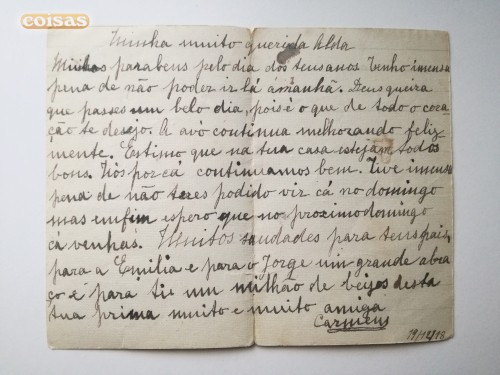 coisas
Minha muito querida Alda
Muitos parabens pelo dia dos teus anos. Tenho imensa
pena de não poder ir lá ámanhã. Deus queira
que passes um belo dia, pois é o que de todo o cora-
ção te desejo. A avó continua melhorando feliz-
mente. Estimo que na tua casa estejam todos
bons. Nós por cá continuamos bem. Tive imensa
pena de não teres podido vir cá no domingo
mas emfim espero que no proximo domingo
cá venhas. Muitos saudades para teus pais,
para a Emilia e para o Jorge um grande abra
ço e para ti um milhão de beijos desta
tua prima muito e muito amiga